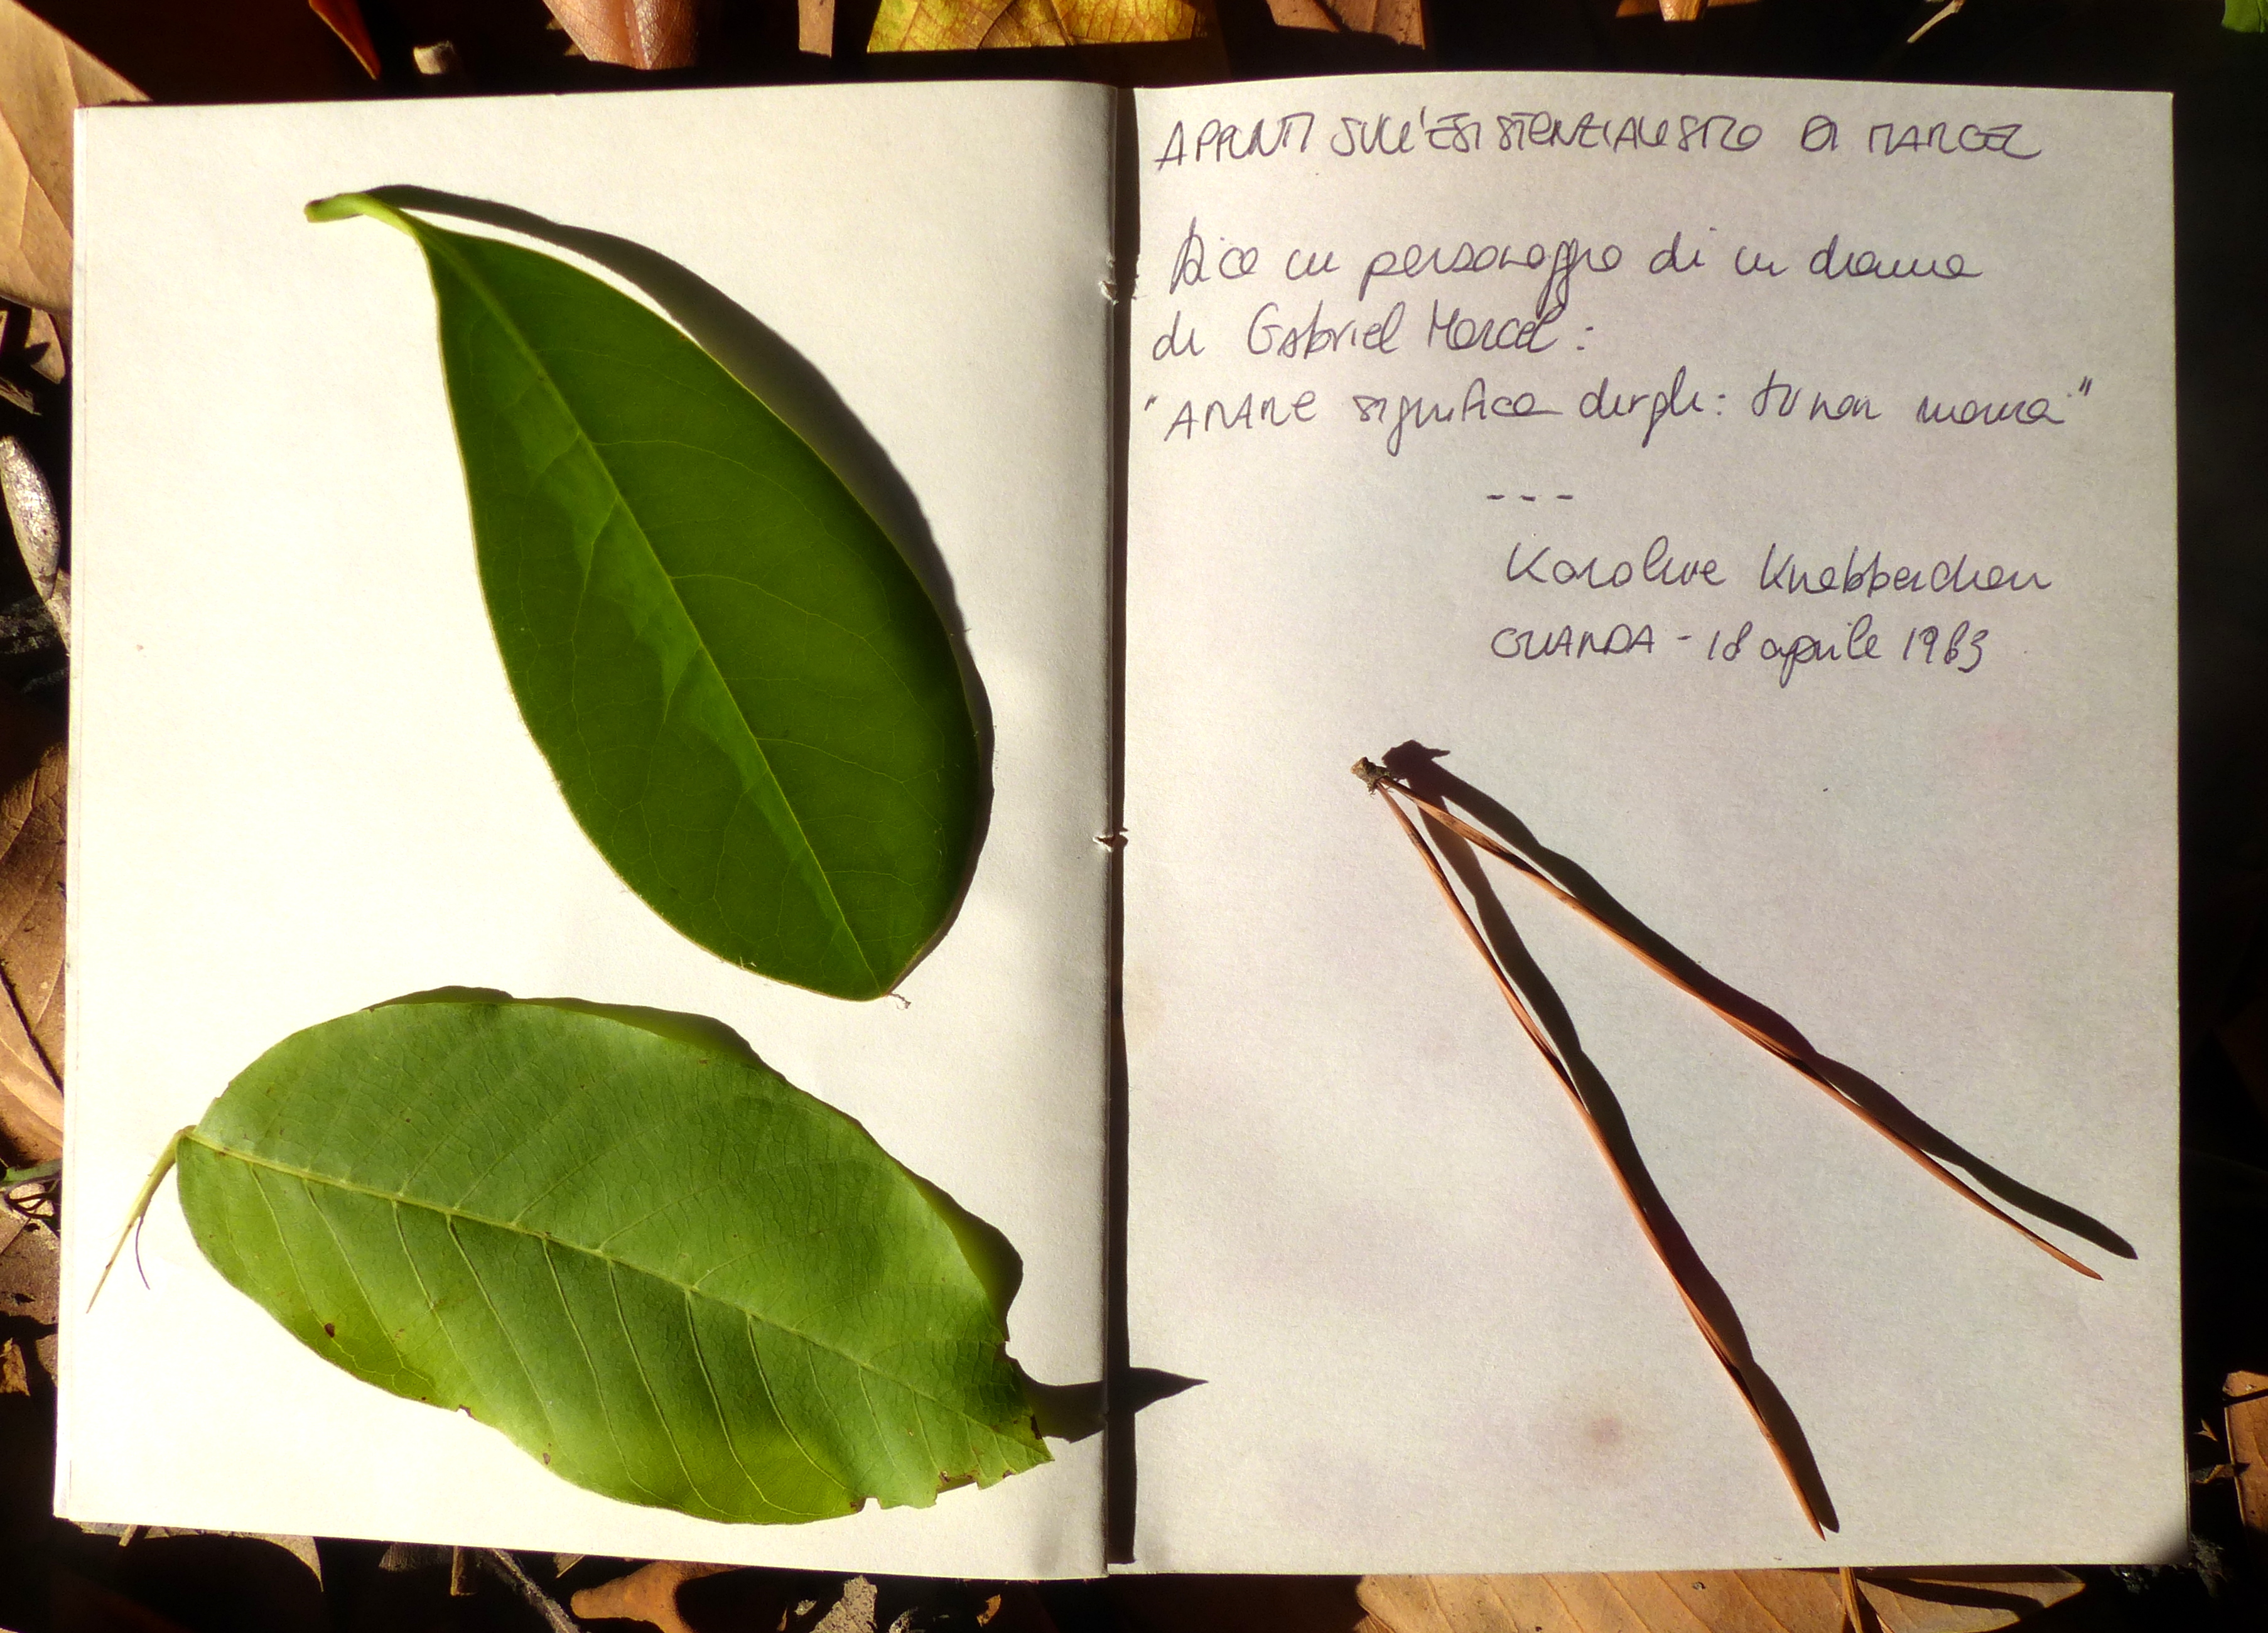 APPUNTI SULL'ESISTENZIALISMO DI MARCEL
Dice un personaggio di un dramma
di Gabriel Marcel:
"AMARE significa dirgli: tu non morrai"
---
Karoline Knebberchen
OLANDA - 18 aprile 1983